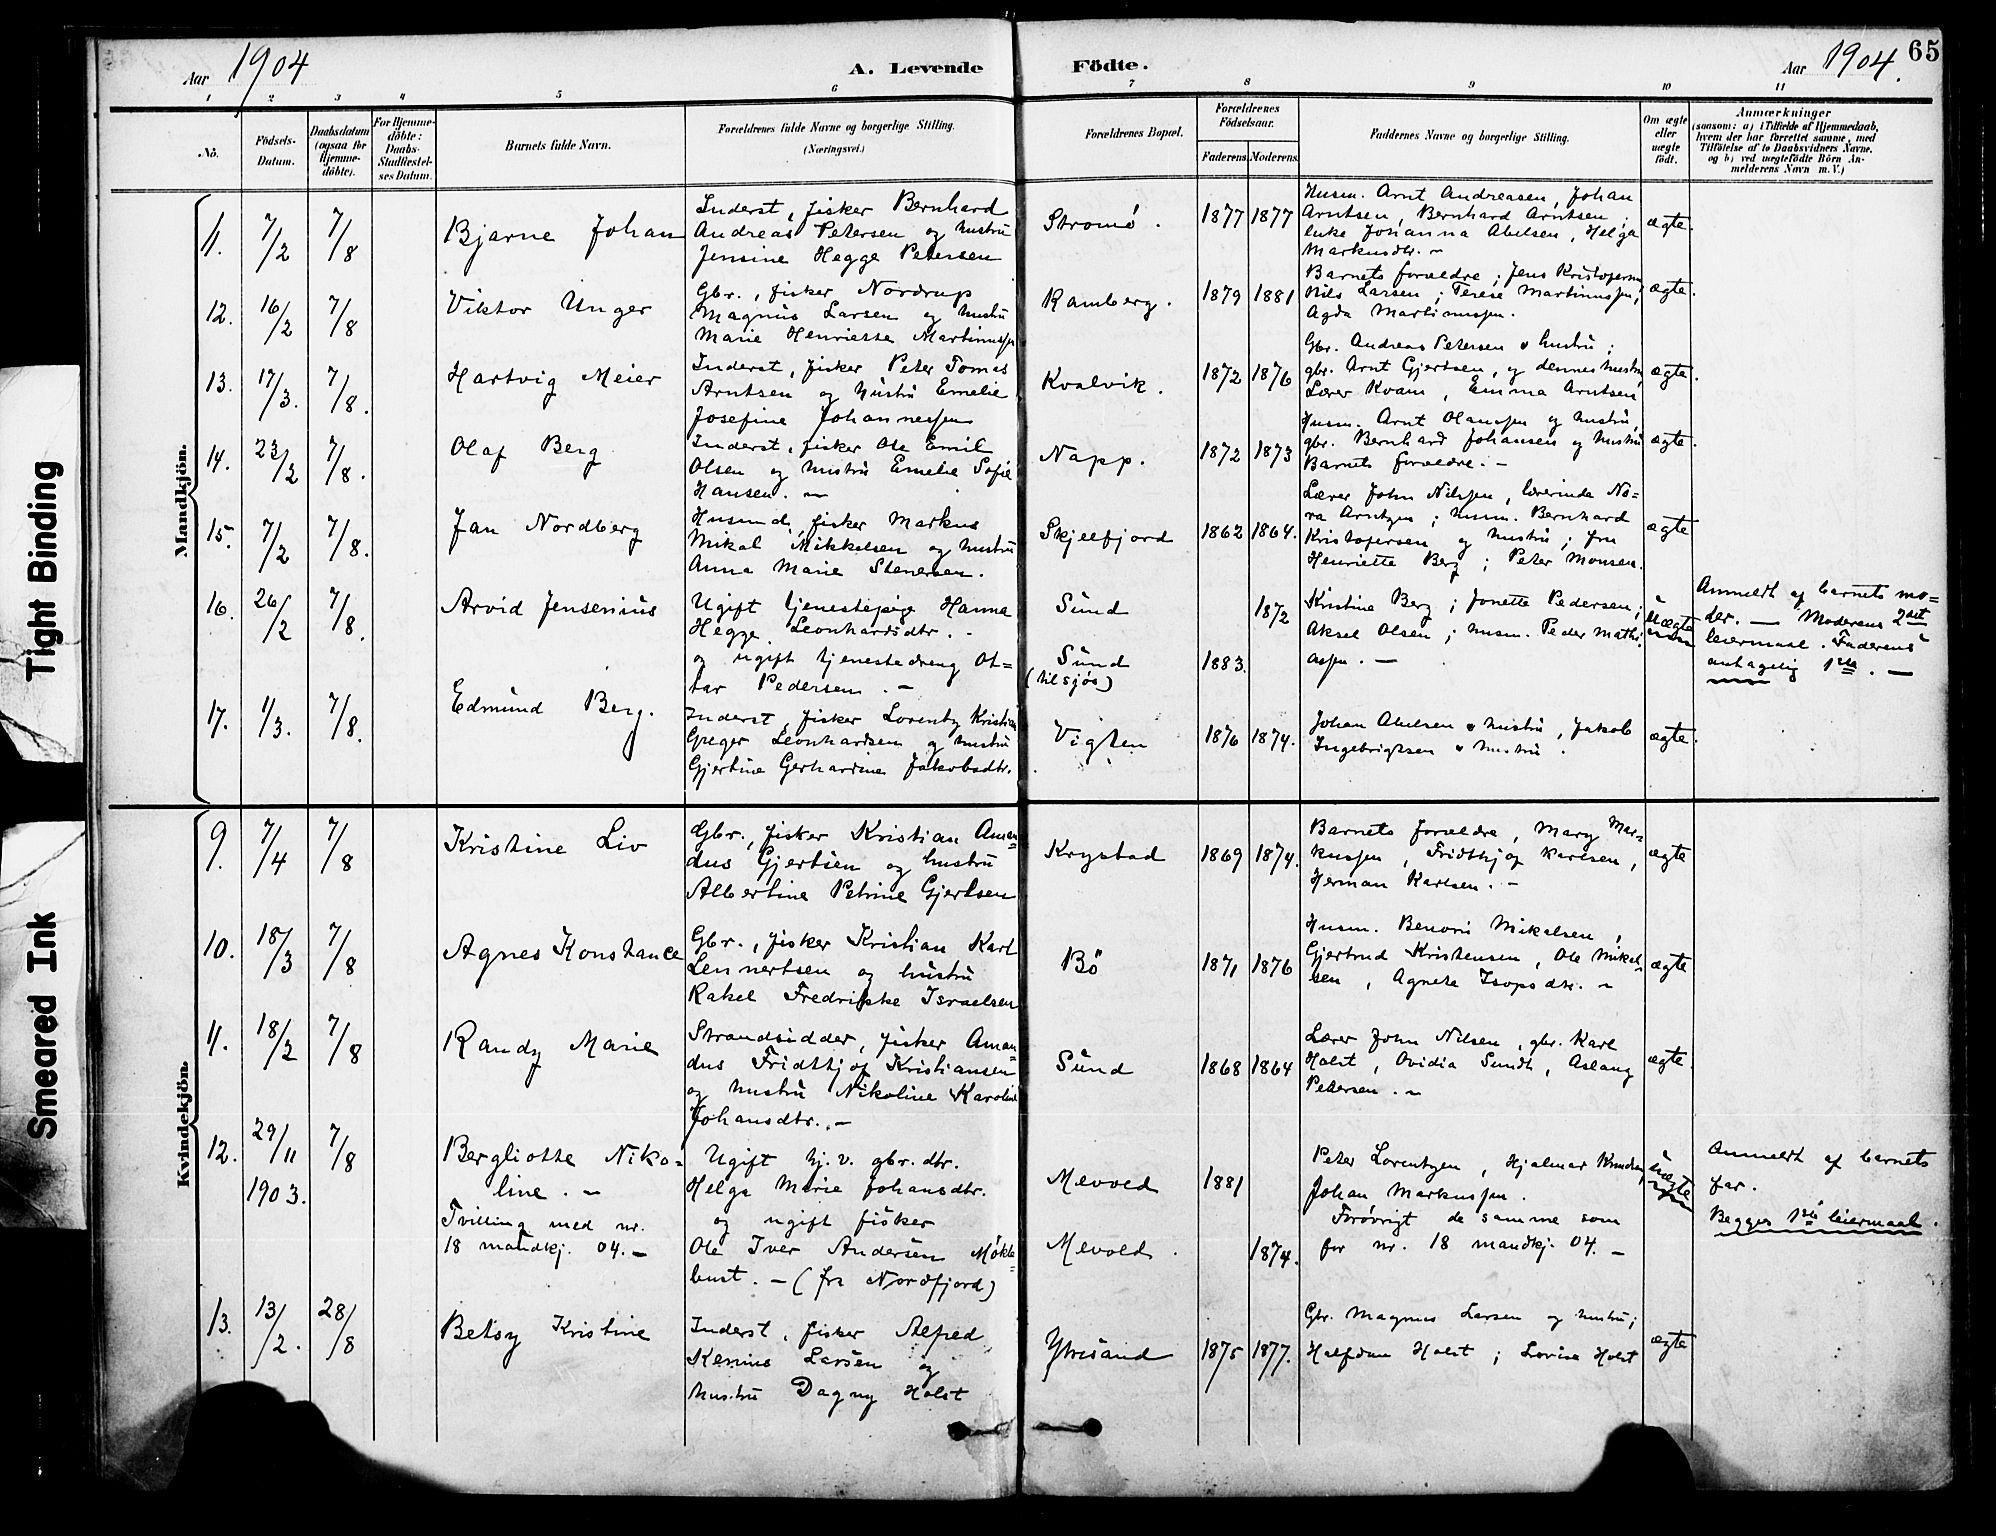 Aar 1904
A. Levende Födte.
Aar 1904.
65
1 2 3 4 5 6 7 8 9 10 11
No.
Födsels-Datum.
Daabsdatum (ogsaa for Hjemmedöbte).
For Hjemmedöbte: Daabs-Stadfæstelses Datum.
Barnets fulde Navn.
Forældrenes fulde Navne og borgerlige Stilling.
(Næringsvei.)
Forældrenes Bopæl.
Forældrenes Födselsaar.
Faderens. Moderens.
Faddernes Navne og borgerlige Stilling.
Om ægte eller uægte födt.
Anmærkninger
(saasom: a) i Tilfælde af Hjemmedaab,
hvem der har forrettet samme, med
Tilföielse af to Daabsvidners Navne,
og b) ved uægtefödte Börn An-
melderens Navn m. V.)
Tight Binding
Smeared Ink
Mandkjön.
11. 7/2 7/8 Bjarne Johan
Inderst, fisker Bernhard
Andreas Petersen og hustru
Jensine Hegge Petersen
Stromö. 1877 1877
Husm. Arnt Andreasen, Johan
Arntsen, Bernhard Arntsen,
enke Johanna Abelsen, Helga
Markusdtr. —
ægte.
12. 16/2 7/8 Viktor Unger
Gbr., fisker Nordrup
Magnus Larsen og hustru
Marie Henriette Martinussen
Ramberg. 1879 1881
Barnets forældre; Jens Kristofersen
Nils Larsen; Terese Martinussen,
Agda Martinussen.
ægte.
13. 17/3. 7/8. Hartvig Meier
Inderst, fisker Peter Tomas
Arntsen og hustru Emelie
Josefine Johannessen
Kvalvik. 1872 1876
Gbr. Andreas Petersen & hustru;
gbr. Arnt Gjertsen, og dennes hustru
Lærer Kvam, Emma Arntsen
ægte.
14. 23/2 7/8. Olaf Berg
Inderst, fisker Ole Emil
Olsen og hustru Emelie Sofie
Hansen. —
Napp. 1872 1873
Husm. Arnt Olaussen og hustru,
gbr. Bernhard Johansen og hustru
Barnets forældre. —
ægte.
15. 7/2 7/8. Jan Nordberg
Husmd, fisker Markus
Mikal Mikkelsen og hustru
Anna Marie Stenersen.
Skjelfjord 1862 1864.
Lærer John Nilssen, lærerinde No-
ra Arntzen; husm. Bernhard
Kristofersen og hustru; fru
Henriette Berg; Peter Monsen.
ægte
16. 26/2 7/8. Arvid Jensenius
Ugift tjenestepige Hanna
Hegge Leonhardsdtr. —
og ugift tjenestedreng Ot-
tar Pedersen. —
Sund 1872
Sund (tilsjös) 1883.
Kristine Berg; Jonette Pedersen;
Aksel Olsen; husm. Peder Mathi-
assen. —
uægte
Anmeldt af barnets mo-
der. — Moderens 2det
leiermaal. Faderens
antagelig 1ste. —
17. 1/3. 7/8. Edmund Berg.
Inderst, fisker Lorentz Kristian
Greger Leonhardsen og hustru
Gjertine Gerhardine Jakobsdtr.
Vigten 1876 1874.
Johan Abelsen & hustru, Jakob
Ingebrigtsen & hustru.
ægte.
Kvindekjön.
9. 7/4 7/8 Kristine Liv
Gbr., fisker Kristian Aman-
dus Gjertsen og hustru
Albertine Petrine Gjertsen
Krystad 1869 1874.
Barnets forældre, Mary Mar-
kussen, Fridthjof Karlsen,
Herman Karlsen. —
ægte
10. 18/3 7/8 Agnes Konstance
Gbr., fisker Kristian Karl
Lennertsen og hustru
Rakel Fredrikke Israelsen
Bö 1871 1876
Husm. Benoni Mikalsen,
Gjertrud Kristensen, Ole Mikal-
sen, Agneta Isopsdtr. —
ægte
11. 18/2 7/8 Randy Marie
Strandsidder, fisker Aman-
dus Fridthjof Kristiansen
og hustru Nikoline Karoline
Johansdtr. —
Sund 1868 1864
Lærer John Nilsen, gbr. Karl
Holst, Ovidia Sundt, Aslaug
Petersen. —
ægte.
12. 29/11 1903. 7/8 Bergliotte Niko-
line. —
Tvilling med nr.
18 mandkj. 04. —
Ugift hj. v. gbr. dtr.
Helga Marie Johansdtr.
og ugift fisker
Ole Iver Andersen Mökle-
bust. — (fra Nordfjord)
Mevold 1881
Mevold. 1874.
Peter Lorentzen, Hjalmar Knudsen,
Johan Markussen.
Forövrigt de samme som
for nr. 18 mandkj. 04. —
uægte
Anmeldt af barnets
far.
Begges 1ste leiermaal.
13. 13/2. 28/8 Betsy Kristine
Inderst, fisker Alfred
Kenius Larsen og
hustru Dagny Holst
Ytresand 1875 1877.
Gbr. Magnus Larsen og hustru;
Halfdan Holst; Lovise Holst
ægte